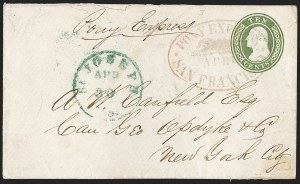 Pony Express
TEN
CENTS
PONY EXPRESS
SAN FRANCISCO
ST JOSEPH
APR
A W Canfield Esq
Care Geo Opdyke & Co
New York City